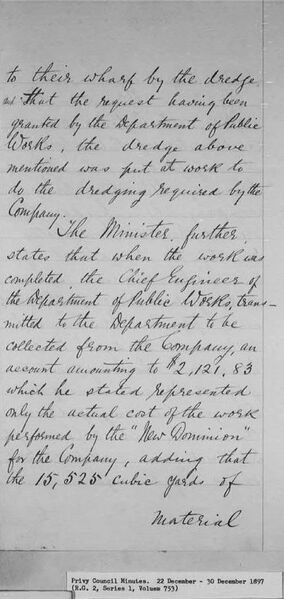 to their wharf by the dredge
and that the request having been
granted by the Department of Public
Works, the dredge above
mentioned was put at work to
do the dredging required by the
Company.
The Minister, further
states that when the work was
completed, the Chief Engineer of
the Department of Public Works, trans-
mitted to the Department to be
collected from the Company, an
account amounting to $2,121,83
which he stated represented
only the actual cost of the work
performed by the "New Dominion"
for the Company, adding that
the 15,525 cubic yards of
material
Privy Council Minutes. 22 December - 30 December 1897
(R.G. 2, Series 1, Volume 753)